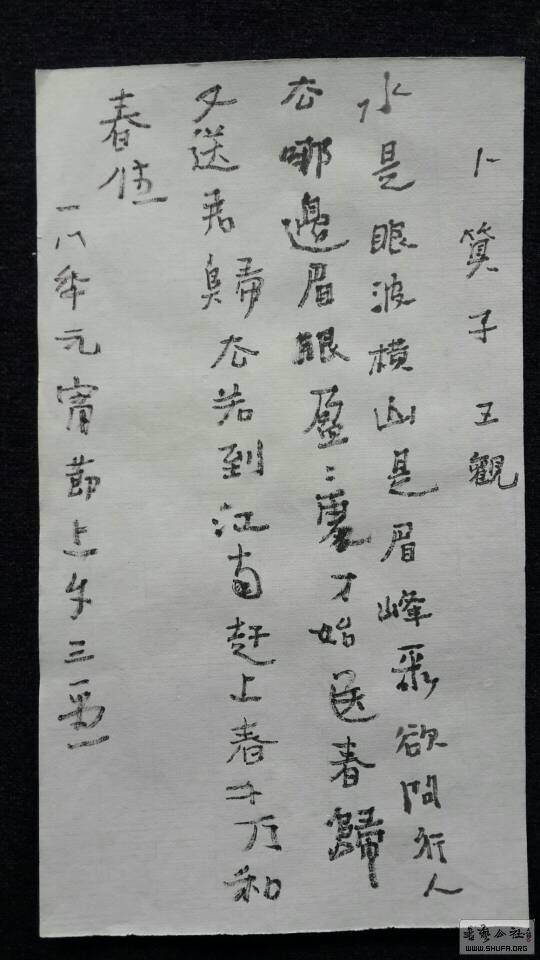 卜算子 王觀
水是眼波橫山是眉峰聚欲問行人
去哪邊眉眼盈:處才始送春歸
又送君歸去若到江南赶上春千万和
春住
一八年元宵節上午三
書藝公社
WWW.SHUFA.ORG